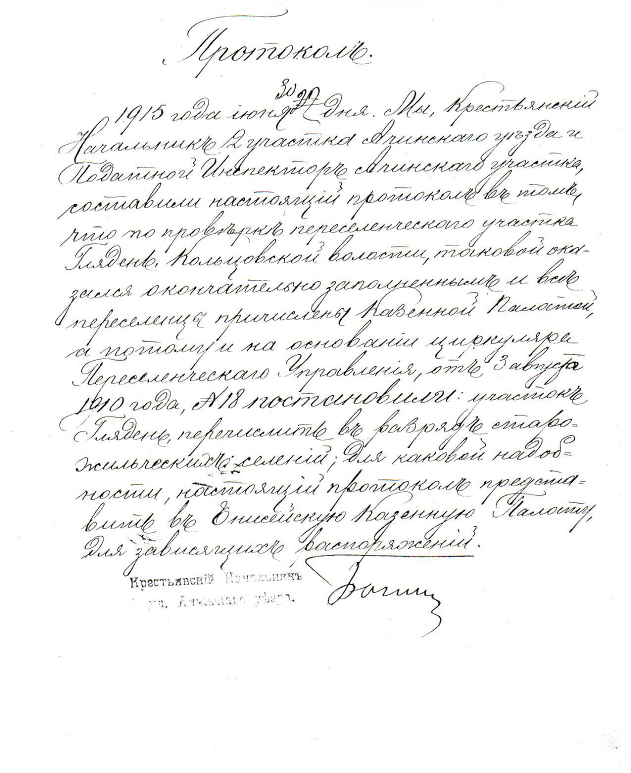 Протоколъ.
1915 года іюня 30 дня. Мы, Крестьянскій
Начальникъ 2 участка Ачинскаго уѣзда и
Податной Инспекторъ Ачинскаго участка,
составили настоящій протоколъ въ томъ,
что по провѣркѣ переселенческаго участка
Гляденъ, Кольцовской волости, таковой ока-
зался окончательно заполненнымъ и всѣ
переселенцы причислены Казенной Палатой,
а потому и на основаніи циркуляра
Переселенческаго Управленія, отъ 3 августа
1910 года, № 18 постановили: участокъ
Гляденъ, перечислить въ разрядъ старо-
жильческихъ селеній; для каковой надоб-
ности, настоящій протоколъ предста-
вить въ Енисейскую Казенную Палату,
для зависящихъ распоряженій.
Крестьянскій Начальникъ
уч. Ачинскаго уѣзда.